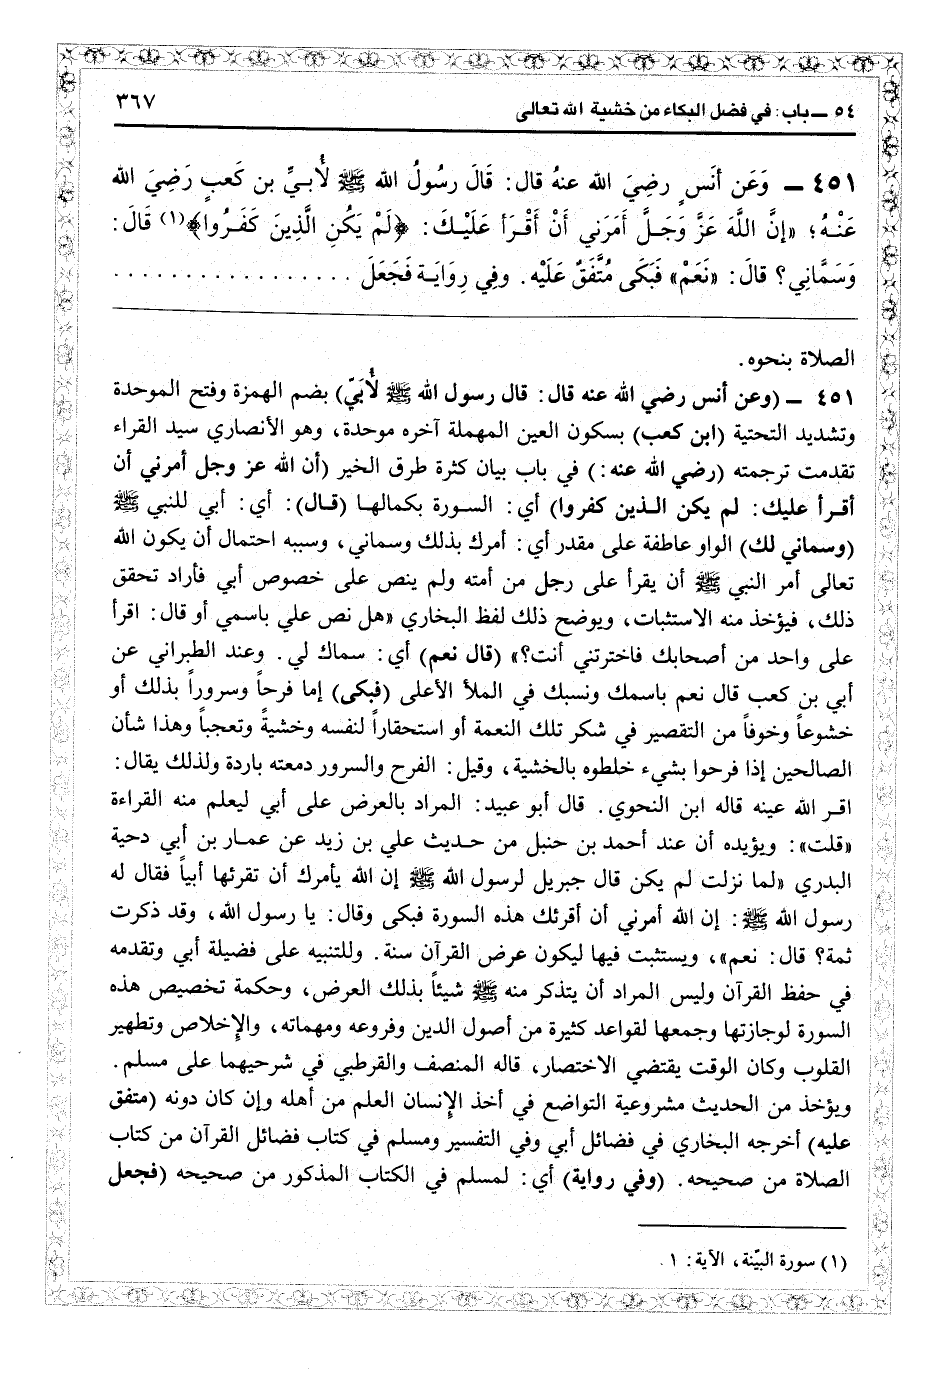 ٥٤ ــ باب: في فضل البكاء من خشية الله تعالى
٣٦٧
٤٥١ ــ وَعَن أنَسٍ رضِيَ الله عنهُ قال: قَالَ رسُولُ الله ﷺ لأُبيِّ بن كَعبٍ رَضِيَ الله
عَنْهُ؛ «إنَّ اللَّهَ عَزَّ وَجَلَّ أَمَرَني أَنْ أَقْرَأ عَلَيْكَ: ﴿لَمْ يَكُنِ الَّذِينَ كَفَرُوا﴾(١) قَالَ:
وَسَمَّانِي؟ قالَ: «نَعَمْ» فَبَكَى مُتَّفَقٌ عَلَيْه. وفِي رِوَايَة فَجَعَلَ ................
الصلاة بنحوه.
٤٥١ ــ (وعن أنس رضي الله عنه قال: قال رسول الله ﷺ لأُبَيّ) بضم الهمزة وفتح الموحدة
وتشديد التحتية (ابن كعب) بسكون العين المهملة آخره موحدة، وهو الأنصاري سيد القراء
تقدمت ترجمته (رضي الله عنه:) في باب بيان كثرة طرق الخير (أن الله عز وجل أمرني أن
أقرأ عليك: لم يكن الذين كفروا) أي: السورة بكمالها (قال): أي: أبي للنبي ﷺ
(وسماني لك) الواو عاطفة على مقدر أي: أمرك بذلك وسماني، وسببه احتمال أن يكون الله
تعالى أمر النبي ﷺ أن يقرأ على رجل من أمته ولم ينص على خصوص أبي فأراد تحقق
ذلك، فيؤخذ منه الاستثبات، ويوضح ذلك لفظ البخاري «هل نص علي باسمي أو قال: اقرأ
على واحد من أصحابك فاخترتني أنت؟» (قال نعم) أي: سماك لي. وعند الطبراني عن
أبي بن كعب قال نعم باسمك ونسبك في الملأ الأعلى (فبكى) إما فرحاً وسروراً بذلك أو
خشوعاً وخوفاً من التقصير في شكر تلك النعمة أو استحقاراً لنفسه وخشيةً وتعجباً وهذا شأن
الصالحين إذا فرحوا بشيء خلطوه بالخشية، وقيل: الفرح والسرور دمعته باردة ولذلك يقال:
اقر الله عينه قاله ابن النحوي. قال أبو عبيد: المراد بالعرض على أبي ليعلم منه القراءة
«قلت»: ويؤيده أن عند أحمد بن حنبل من حديث علي بن زيد عن عمار بن أبي دحية
البدري «لما نزلت لم يكن قال جبريل لرسول الله ﷺ إن الله يأمرك أن تقرئها أبياً فقال له
رسول الله ﷺ: إن الله أمرني أن أقرئك هذه السورة فبكى وقال: يا رسول الله، وقد ذكرت
ثمة؟ قال: نعم»، ويستثبت فيها ليكون عرض القرآن سنة. وللتنبيه على فضيلة أبي وتقدمه
في حفظ القرآن وليس المراد أن يتذكر منه ﷺ شيئاً بذلك العرض، وحكمة تخصيص هذه
السورة لوجازتها وجمعها لقواعد كثيرة من أصول الدين وفروعه ومهماته، والإخلاص وتطهير
القلوب وكان الوقت يقتضي الاختصار، قاله المنصف والقرطبي في شرحيهما على مسلم.
ويؤخذ من الحديث مشروعية التواضع في أخذ الإنسان العلم من أهله وإن كان دونه (متفق
عليه) أخرجه البخاري في فضائل أبي وفي التفسير ومسلم في كتاب فضائل القرآن من كتاب
الصلاة من صحيحه. (وفي رواية) أي: لمسلم في الكتاب المذكور من صحيحه (فجعل
(١) سورة البيّنة، الآية: ١.